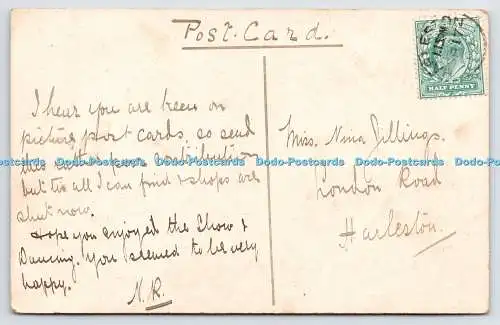 Post-Card.
HALF PENNY
I hear you are keen on
picture post cards, so send
this rather poor contribution
but tis all I can find & shops are
shut now.
Hope you enjoyed the Show &
Dancing. You seemed to be very
happy.
N.R.
Miss. Nina Jillings.
London Road
Harleston.
Dodo-Postcards Dodo-Postcards Dodo-Postcards Dodo-Postcards Dodo-Postcards Dodo-Postcards